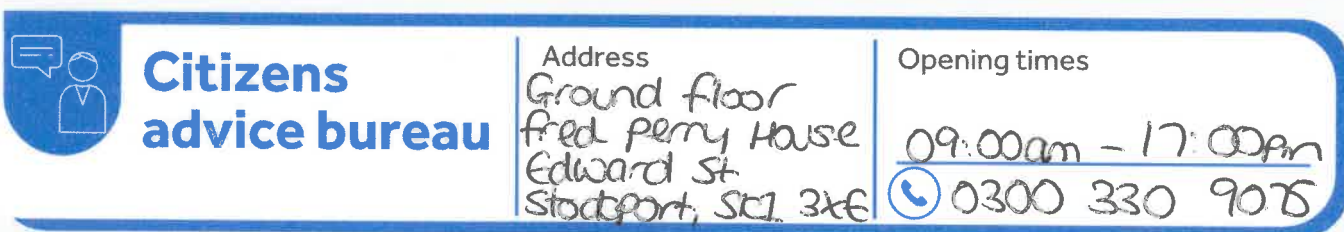 Citizens
advice bureau
Address
Ground floor
fred perry House
Edward St
Stockport, SK1 3XE
Opening times
09:00am - 17:00pm
0300 330 9075